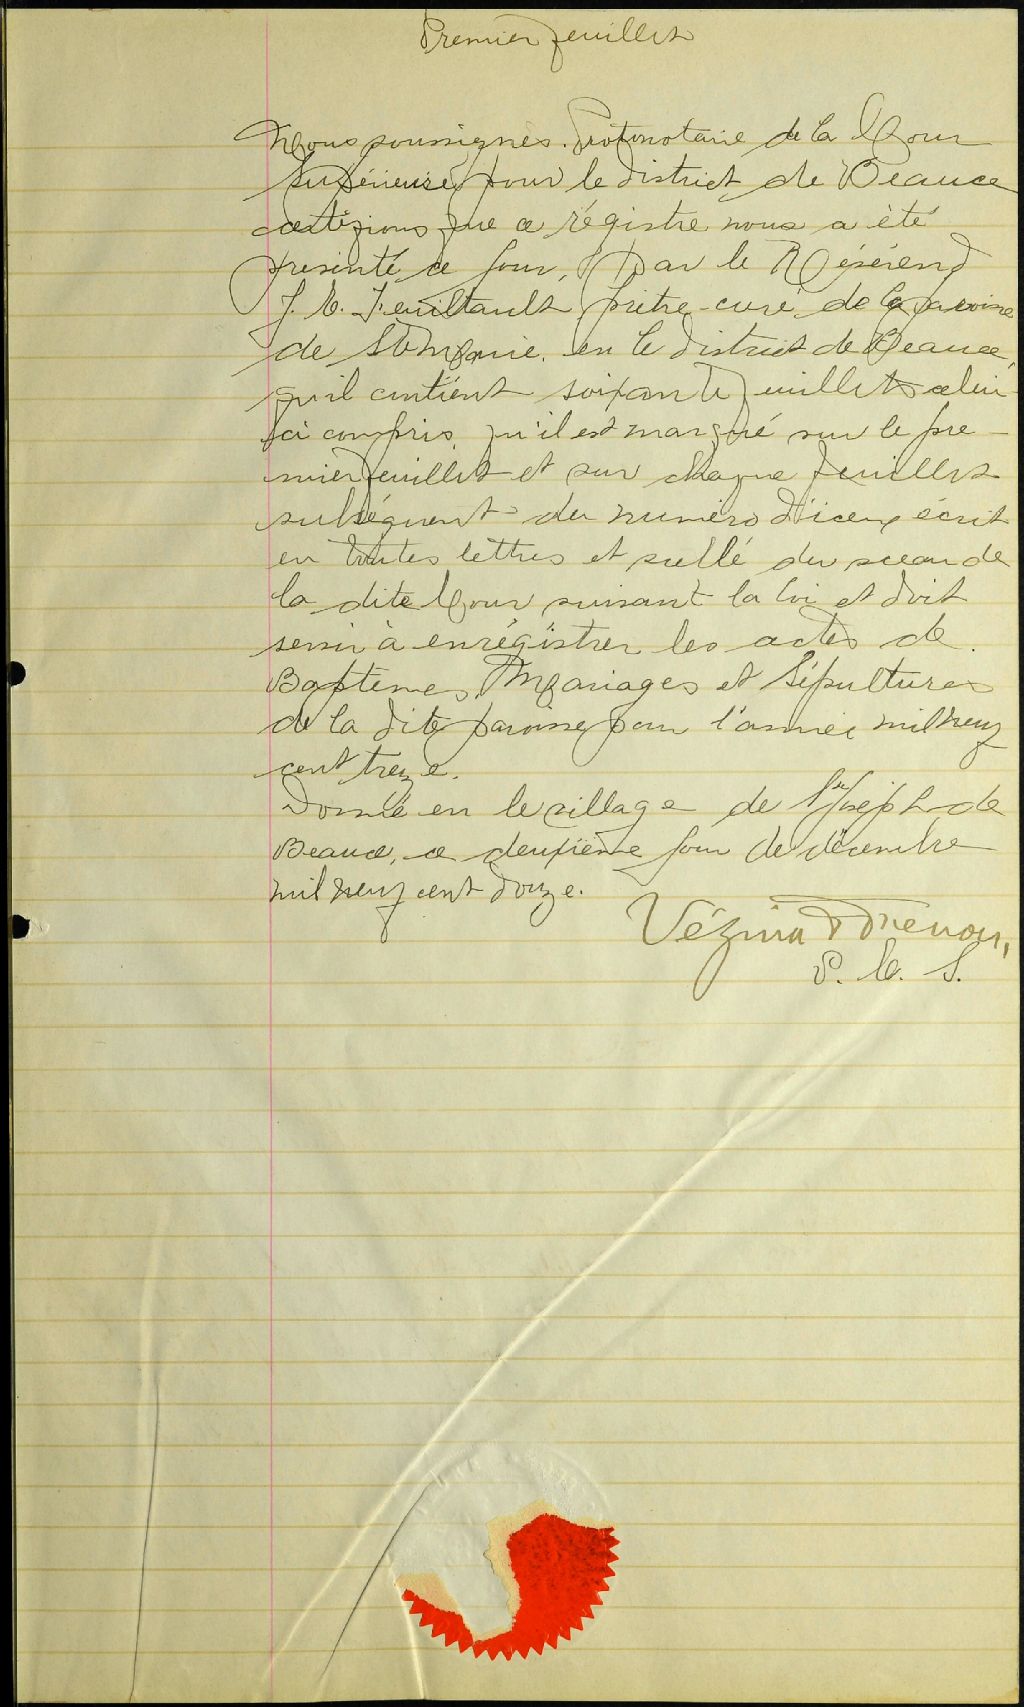 Premier feuillet
Nous soussignés. Protonotaire de la Cour
Supérieure pour le district de Beauce
certifions que ce régistre nous a été
présenté ce jour, par le Révérend
J. E. Feuiltault prêtre-curé de la paroisse
de Ste Marie, en le district de Beauce,
qu'il contient soixante feuillets celui
ci compris, qu'il est marqué sur le pre-
mier feuillet et sur chaque feuillet
subséquent du numéro d'iceux écrit
en toutes lettres et scellé du sceau de
la dite Cour suivant la loi et doit
servir à enrégistrer les actes de
Baptêmes, Mariages et Sépultures
de la dite paroisse pour l'année mil neuf
cent treize.
Donné en le village de St Joseph de
Beauce, ce deuxième jour de décembre
mil neuf cent douze.
Vézina
P. C. S.